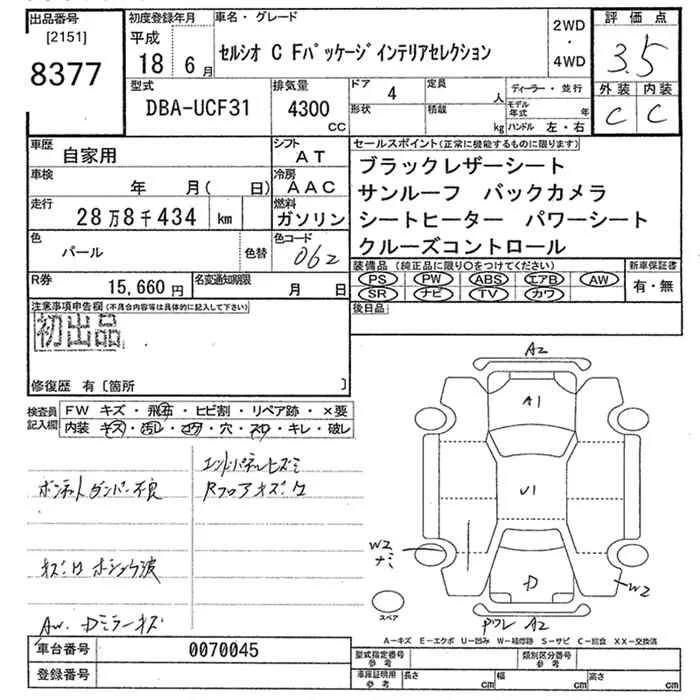 出品番号
[2151]
8377
初度登録年月
平成
18 6月
車名・グレード
セルシオ C Fパッケージインテリアセレクション
2WD
・
4WD
評価点
3.5
外装 内装
C C
型式
DBA-UCF31
排気量
4300
CC
ドア 4
形状
定員 人
積載 kg
ディーラー・並行
モデル年式 年
ハンドル 左・右
車歴
自家用
シフト
AT
車検
年 月( 日)
冷房
AAC
走行
28万8千434 km
燃料
ガソリン
色
パール
色替
色コード
062
R券
15,660円
名変通知期限
月 日
セールスポイント(正常に機能するものに限ります)
ブラックレザーシート
サンルーフ バックカメラ
シートヒーター パワーシート
クルーズコントロール
装備品 (純正品に限り○をつけてください)
PS PW ABS エアB AW
SR ナビ TV カワ
新車保証書
有・無
後日品
注意事項申告欄(不具合内容等は具体的に記入して下さい)
初出品
修復歴 有〔箇所 〕
検査員記入欄
FW キズ・飛石・ヒビ割・リペア跡・×要
内装 キズ・汚レ・コゲ・穴・スレ・キレ・破レ
エンドパネルヒズミ
ボンネットダンパー不良
RフロアキズH
AW. Dミラーキズ
A2
A1
U1
W2
ナミ
D
W2
A2
スペア
A-キズ E-エクボ U-凹み W-補修跡 S-サビ C-腐食 XX-交換済
車台番号
0070045
登録番号
型式指定番号
参考
類別区分番号
参考
車庫証明用
参考
長さ cm
幅 cm
高さ cm